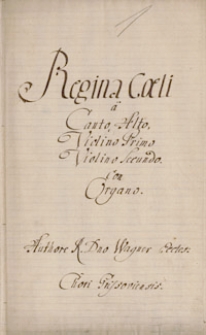 1
Regina Cœli
à
Canto, Alto,
Violino Primo
Violino Secundo.
Con
Organo.
Authore R. Dno Wagner
Chori